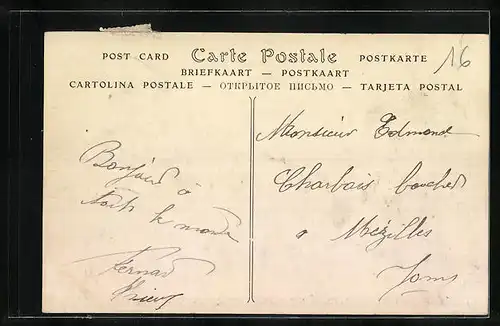 POST CARD Carte Postale POSTKARTE
BRIEFKAART — POSTKAART
CARTOLINA POSTALE — ОТКРЫТОЕ ПИСЬМО — TARJETA POSTAL
16
Bonjour à
tout le monde
Fernand
Monsieur Edmond
Charbois boucher
a Mézilles